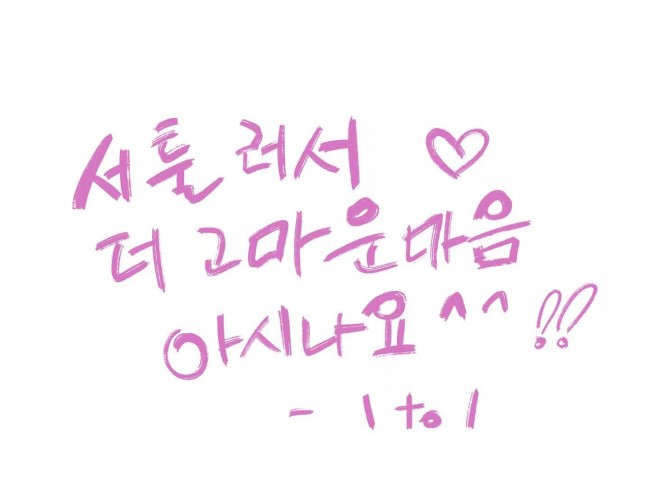 서툴러서 ♡
더 고마운마음
아시나요^^!!
- 1 to 1